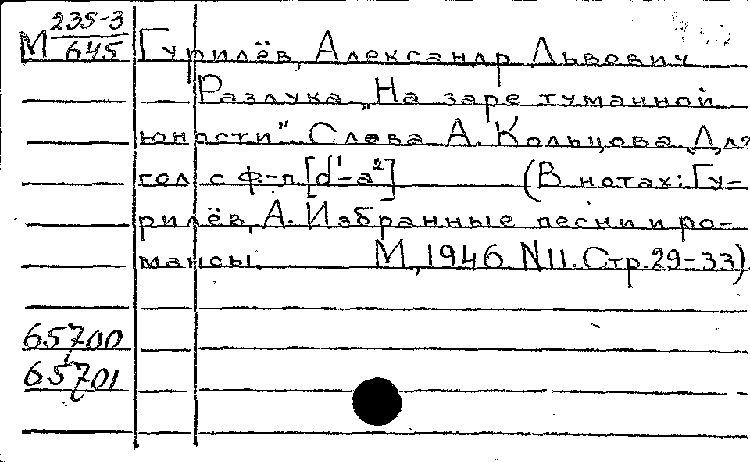 М 235-3/645
Гурилёв, Александр Львович
Разлука „На заре туманной
юности" Слова А. Кольцова Для
гол с ф-п [d¹-a²] (В нотах: Гу-
рилёв, А. Избранные песни и ро-
мансы. М., 1946 N11. Стр. 29-33)
65700
65701